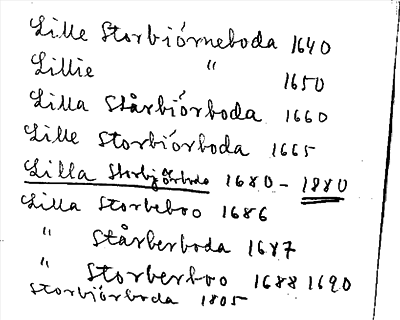 Lille Storbiórneboda 1640
Lillie " 1650
Lilla Stårbiórboda 1660
Lille Storbiórboda 1665
Lilla Storbjörboda 1680 - 1880
Lilla Storbeboo 1686
" Stårberboda 1687
" Storberboo 1688 1690
Storbjórboda 1805